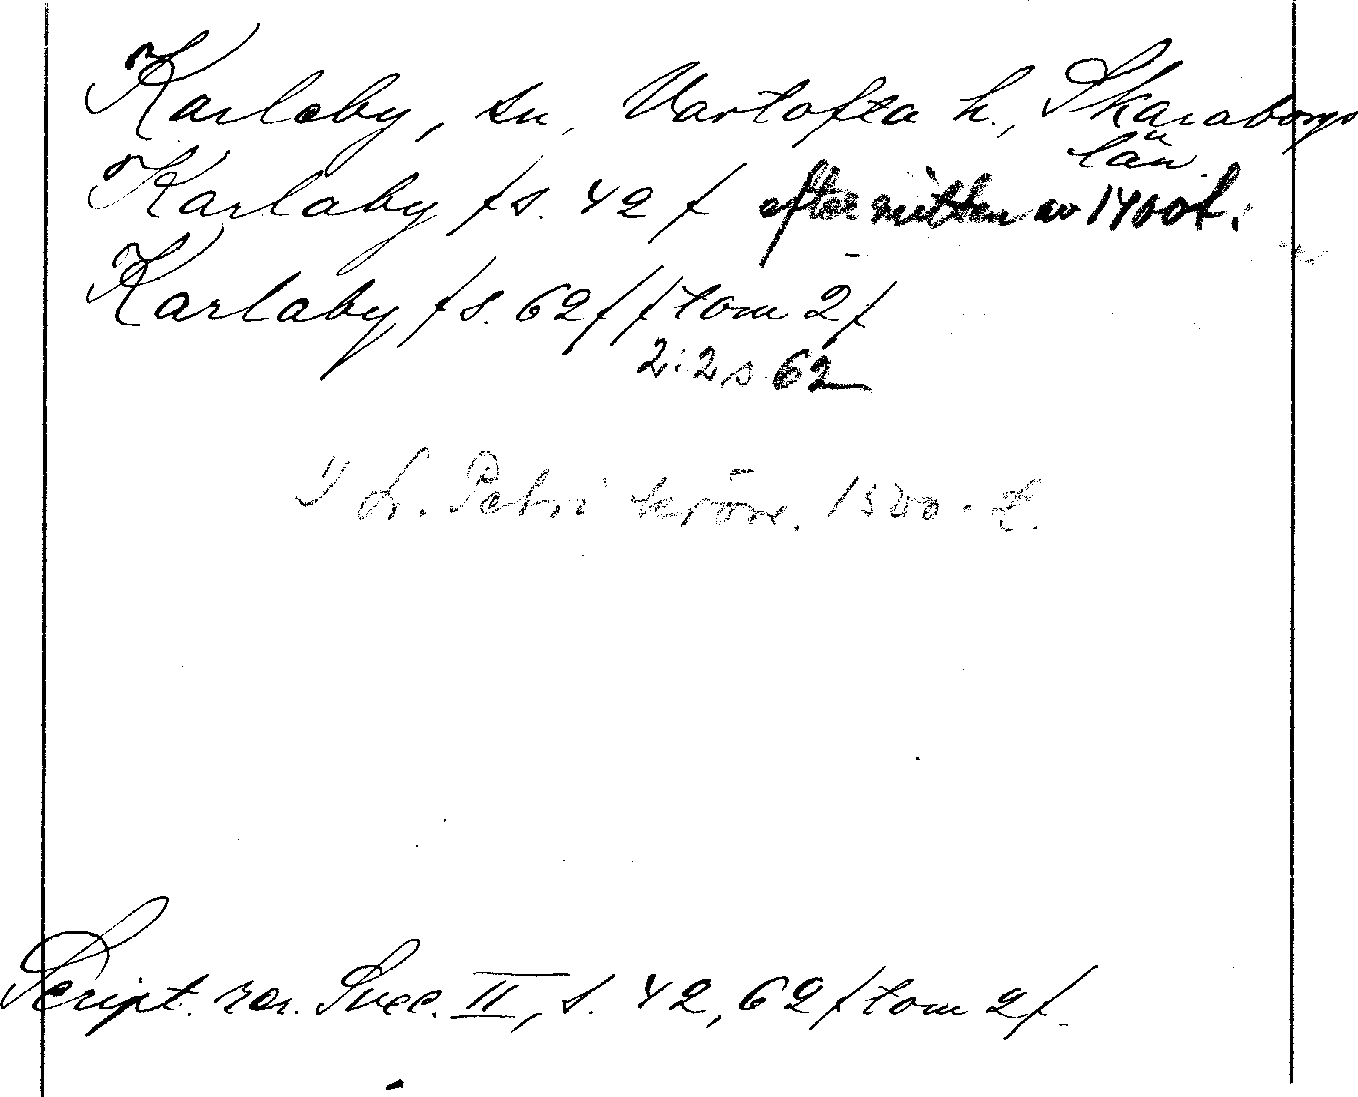 Karleby, sn, Vartofta h., Skaraborgs
län
Karlaby /s. 42/ efter mitten av 1400t.
Karlaby /s. 62/ /tom 2/
2:2 s 62
I L. Petri krön. 1500-t.
Script. rer. Svec. II, s. 42, 62 /tom 2/.